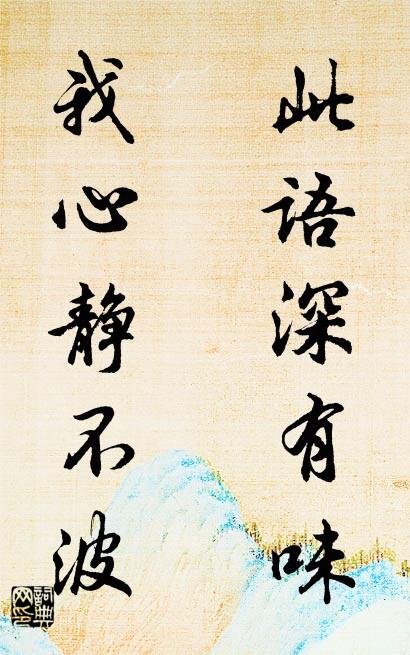 此语深有味
我心静不波
詞典
网印